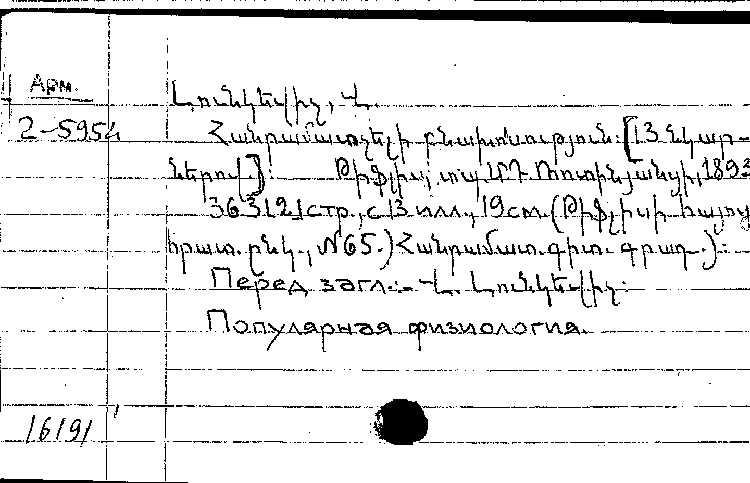 Арм.
2-5954
Լունկեվիչ, Վ.
Հանրամատչելի բնախօսություն: [13 նկար-
ներով]: Թիֆլիս, տպ. Մ. Ռոտինյանցի, 1893
363[2] стр., с 13 илл., 19 см. (Թիֆլիսի հայոց
հրատ. ընկ., №65.) Հանրամատ. գիտ. գրադ.):
Перед загл.: Վ. Լունկեվիչ.
Популярная физиология.
16191